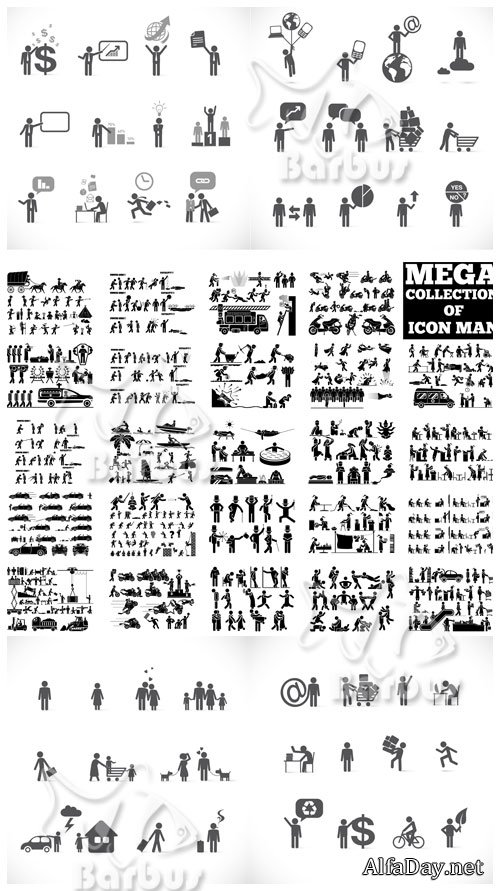 @
Barbus
Barbus
YES
NO
MEGA
COLLECTION
OF
ICON MAN
Barbus
Barbus
@
Barbus
Barbus
AlfaDay.net